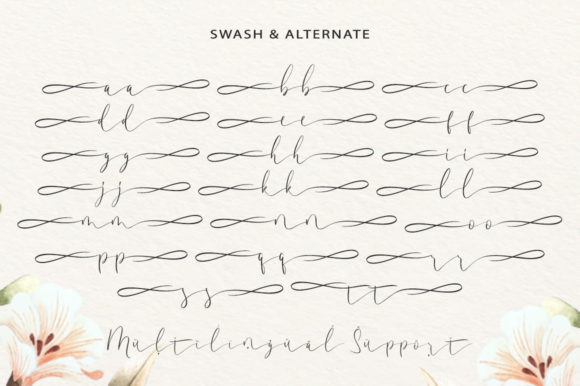 SWASH & ALTERNATE
aa bb cc
dd ee ff
gg hh ii
jj kk ll
mm nn oo
pp qq rr
ss tt
Multilingual Support